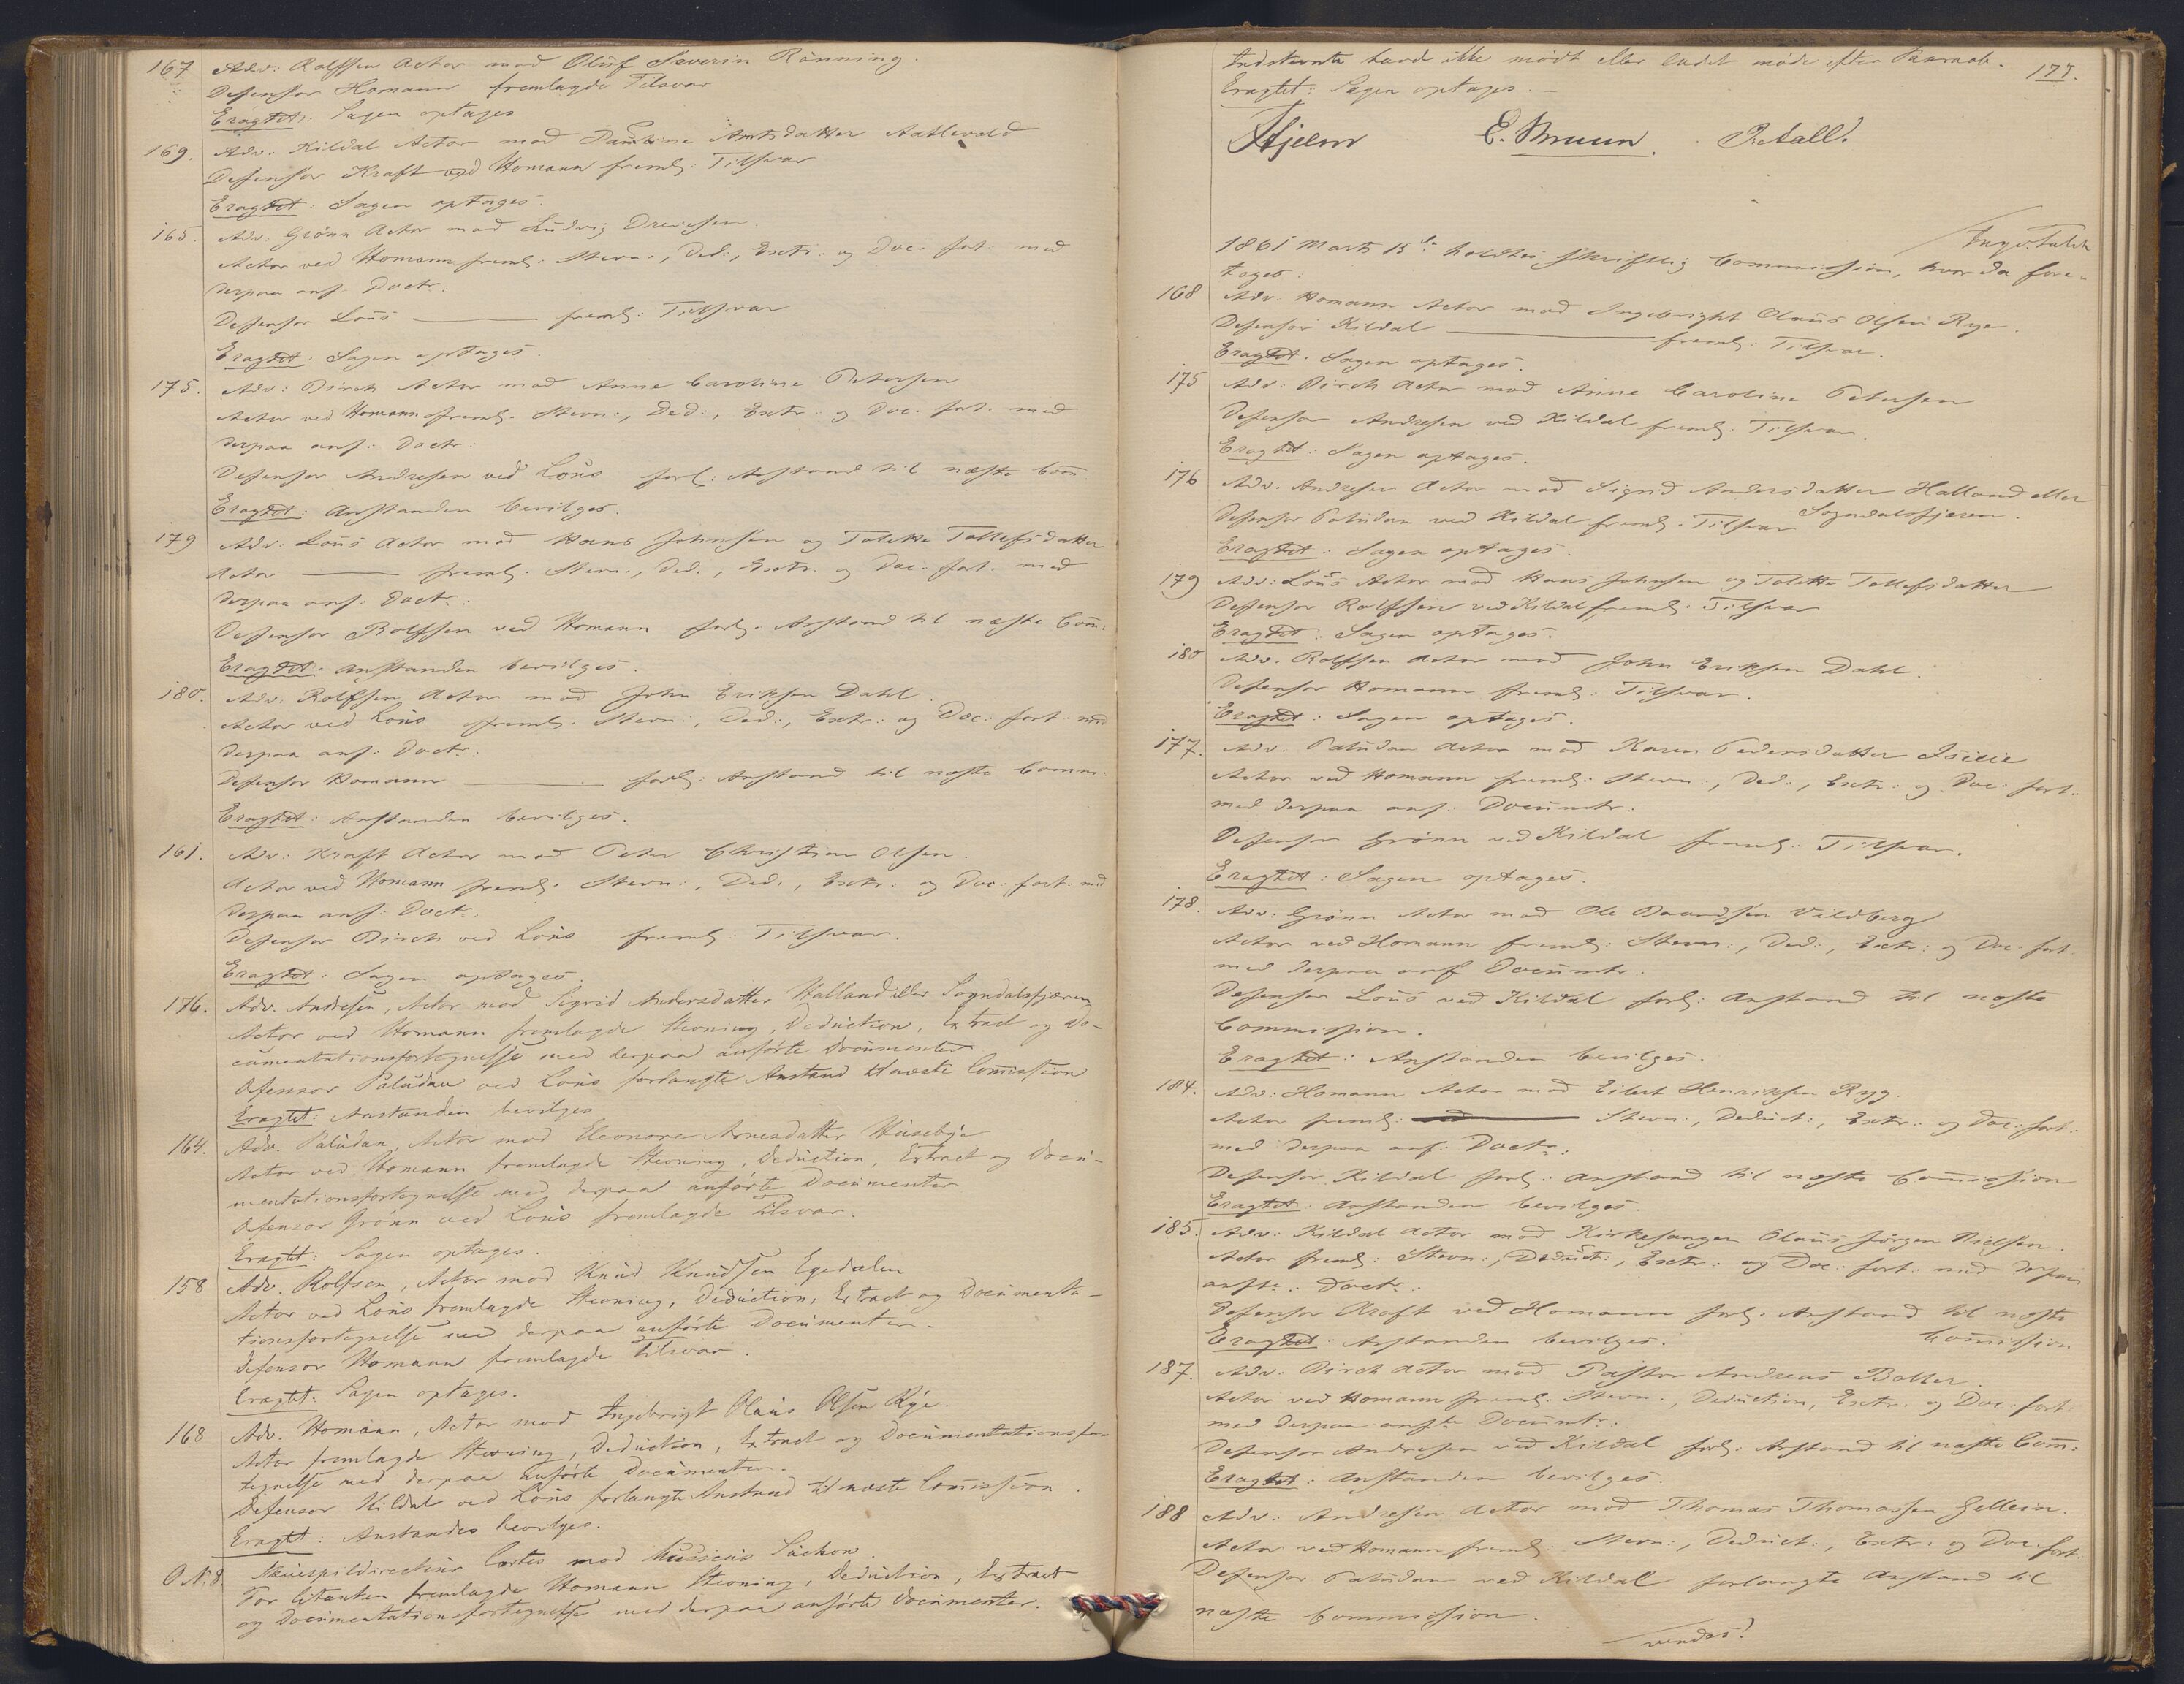 167 Adv: Rolfsen Actor mod Oluf Severin Rönning.
Defensor Homann fremlagde Tilsvar
Eragtet: Sagen optages
169. Adv. Kildal Actor mod Amtsdatter
Defensor Kraft ved Homann freml: Tilsvar
Eragtet: Sagen optages.
165. Adv. Grönn Actor mod Ludvig Drevesen
Actor ved Homann freml: Stevn:, Ded:, Extr: og Doc. fort. med
derpaa anf: Doctr:
Defensor Lous freml: Tilsvar
Eragtet: Sagen optages.
175. Adv: Birch Actor mod Anne Caroline Petersen
Actor ved Homann freml. Stevn:, Ded:, Extr: og Doc. fort. med
derpaa anf: Doctr:
Defensor Andresen ved Lous forl: Anstand til næste Com̄.
Eragtet: Anstanden bevilges.
179 Adv: Lous Actor mod Hans Johnsen og Tolette Tollefsdatter
Actor freml. Stevn:, Ded:, Extr: og Doc. fort. med
derpaa anf: Doctr:
Defensor Rolfsen ved Homann forl. Anstand til næste Com̄:
Eragtet: Anstanden bevilges.
180. Adv. Rolfsen Actor mod John Eriksen Dahl.
Actor ved Lous freml. Stevn:, Ded:, Extr: og Doc: fort. med
derpaa anf: Doctr:
Defensor Homann forl: Anstand til næste Comm:
Eragtet: Anstanden bevilges.
161. Adv: Kraft Actor mod Peter Christian Olsen.
Actor ved Homann freml. Stevn:, Ded:, Extr: og Doc: fort. med
derpaa anf: Doctr.
Defensor Birch ved Lous freml: Tilsvar.
Eragtet: Sagen optages.
176. Adv. Andresen, Actor mod Sigrid Andersdatter Halland eller Sogndalsfjæren
Actor ved Homann fremlagde Stevning, Deduction, Extract og Do-
cumentationsfortegnelse med derpaa anförte Documenter
Defensor Paludan ved Lous forlangte Anstand til næste Com̄ission
Eragtet: Anstanden bevilges
164. Adv. Paludan, Actor mod Eleonore Arnesdatter Husebye
Actor ved Homann fremlagde Stevning, Deduction, Extract og Docu-
mentationsfortegnelse med derpaa anförte Documenter
Defensor Grönn ved Lous fremlagde Tilsvar.
Eragtet: Sagen optages.
158 Adv. Rolfsen, Actor mod Knud Knudsen Egedalen
Actor ved Lous fremlagde Stevning, Deduction, Extract og Documenta-
tionsfortegnelse med derpaa anförte Documenter.
Defensor Homann fremlagde Tilsvar.
Eragtet: Sagen optages.
168 Adv. Homann, Actor mod Ingebrigt Olaus Olsen Rye.
Actor fremlagde Stevning, Deduction, Extract og Documentationsfor-
tegnelse med derpaa anförte Documenter.
Defensor Kildal ved Lous forlangte Anstand til næste Com̄ission.
Eragtet: Anstanden bevilges.
O.N. 8. Skuespildirecteur Cortes mod Musicus Suchow.
For Citanten fremlagde Homann Stevning, Deduction, Extract
og Documentationsfortegnelse med derpaa anförte Documenter.
177.
Indstevnte havde ikke mödt eller ladet möde efter Paaraab.
Eragtet: Sagen optages.
Hjelm E. Bruun. P. Aall.
1861 Marts 15de holdtes Skriftlig Commission, hvor da fore-
tages:
168 Adv. Homann Actor mod Ingebright Olaus Olsen Rye.
Defensor Kildal freml: Tilsvar.
Eragtet. Sagen optages.
175 Adv. Birch Actor mod Anne Caroline Petersen
Defensor Andresen ved Kildal freml. Tilsvar.
Eragtet: Sagen optages.
176 Adv. Andresen Actor mod Sigrid Andersdatter Halland eller
Sogndalsfjæren.
Defensor Paludan ved Kildal freml. Tilsvar
Eragtet: Sagen optages.
179 Adv: Lous Actor mod Hans Johnsen og Tolette Tollefsdatter
Defensor Rolfsen ved Kildal freml: Tilsvar
Eragtet: Sagen optages.
180 Adv. Rolfsen Actor mod John Eriksen Dahl.
Defensor Homann freml: Tilsvar.
Eragtet: Sagen optages.
177. Adv. Paludan Actor mod Karen Pedersdatter
Actor ved Homann freml: Stevn:, Ded:, Extr: og Doc: fort.
med derpaa anf: Documtr.
Defensor Grönn ved Kildal freml: Tilsvar.
Eragtet: Sagen optages.
178. Adv: Grönn Actor mod Ole Vildberg
Actor ved Homann freml: Stevn:, Ded:, Extr: og Doc. fort.
med derpaa anf Documtr:
Defensor Lous ved Kildal forl: Anstand til næste
Commission.
Eragtet: Anstanden bevilges.
184. Adv: Homann Actor mod Eilert Henriksen Ryg.
Actor freml: Stevn:, Deduct:, Extr: og Doc: fort:
med derpaa anf: Doctr:
Defensor Kildal forl: Anstand til næste Com̄ission
Eragtet: Anstanden bevilges.
185. Adv: Kildal Actor mod Kirkesanger Olaus Jörgen Nielsen.
Actor freml: Stevn:, Deduct:, Extr: og Doc: fort. med derpaa
anfte. Doctr:
Defensor Kraft ved Homann forl. Anstand til næste
Com̄ission
Eragtet: Anstanden bevilges.
187. Adv: Birch Actor mod Pastor Andreas Balter.
Actor ved Homann freml. Stevn:, Deduction, Extr. og Doc: fort:
med derpaa anfte Documtr.
Defensor Andresen ved Kildal forl: Anstand til næste Com̄:
Eragtet: Anstanden bevilges.
188 Adv: Andresen Actor mod Thomas Thomassen Gellein.
Actor ved Homann freml: Stevn:, Deduct:, Extr: og Doc: fort:
Defensor Paludan ved Kildal forlangte Anstand til
næste Commission.
vendes!